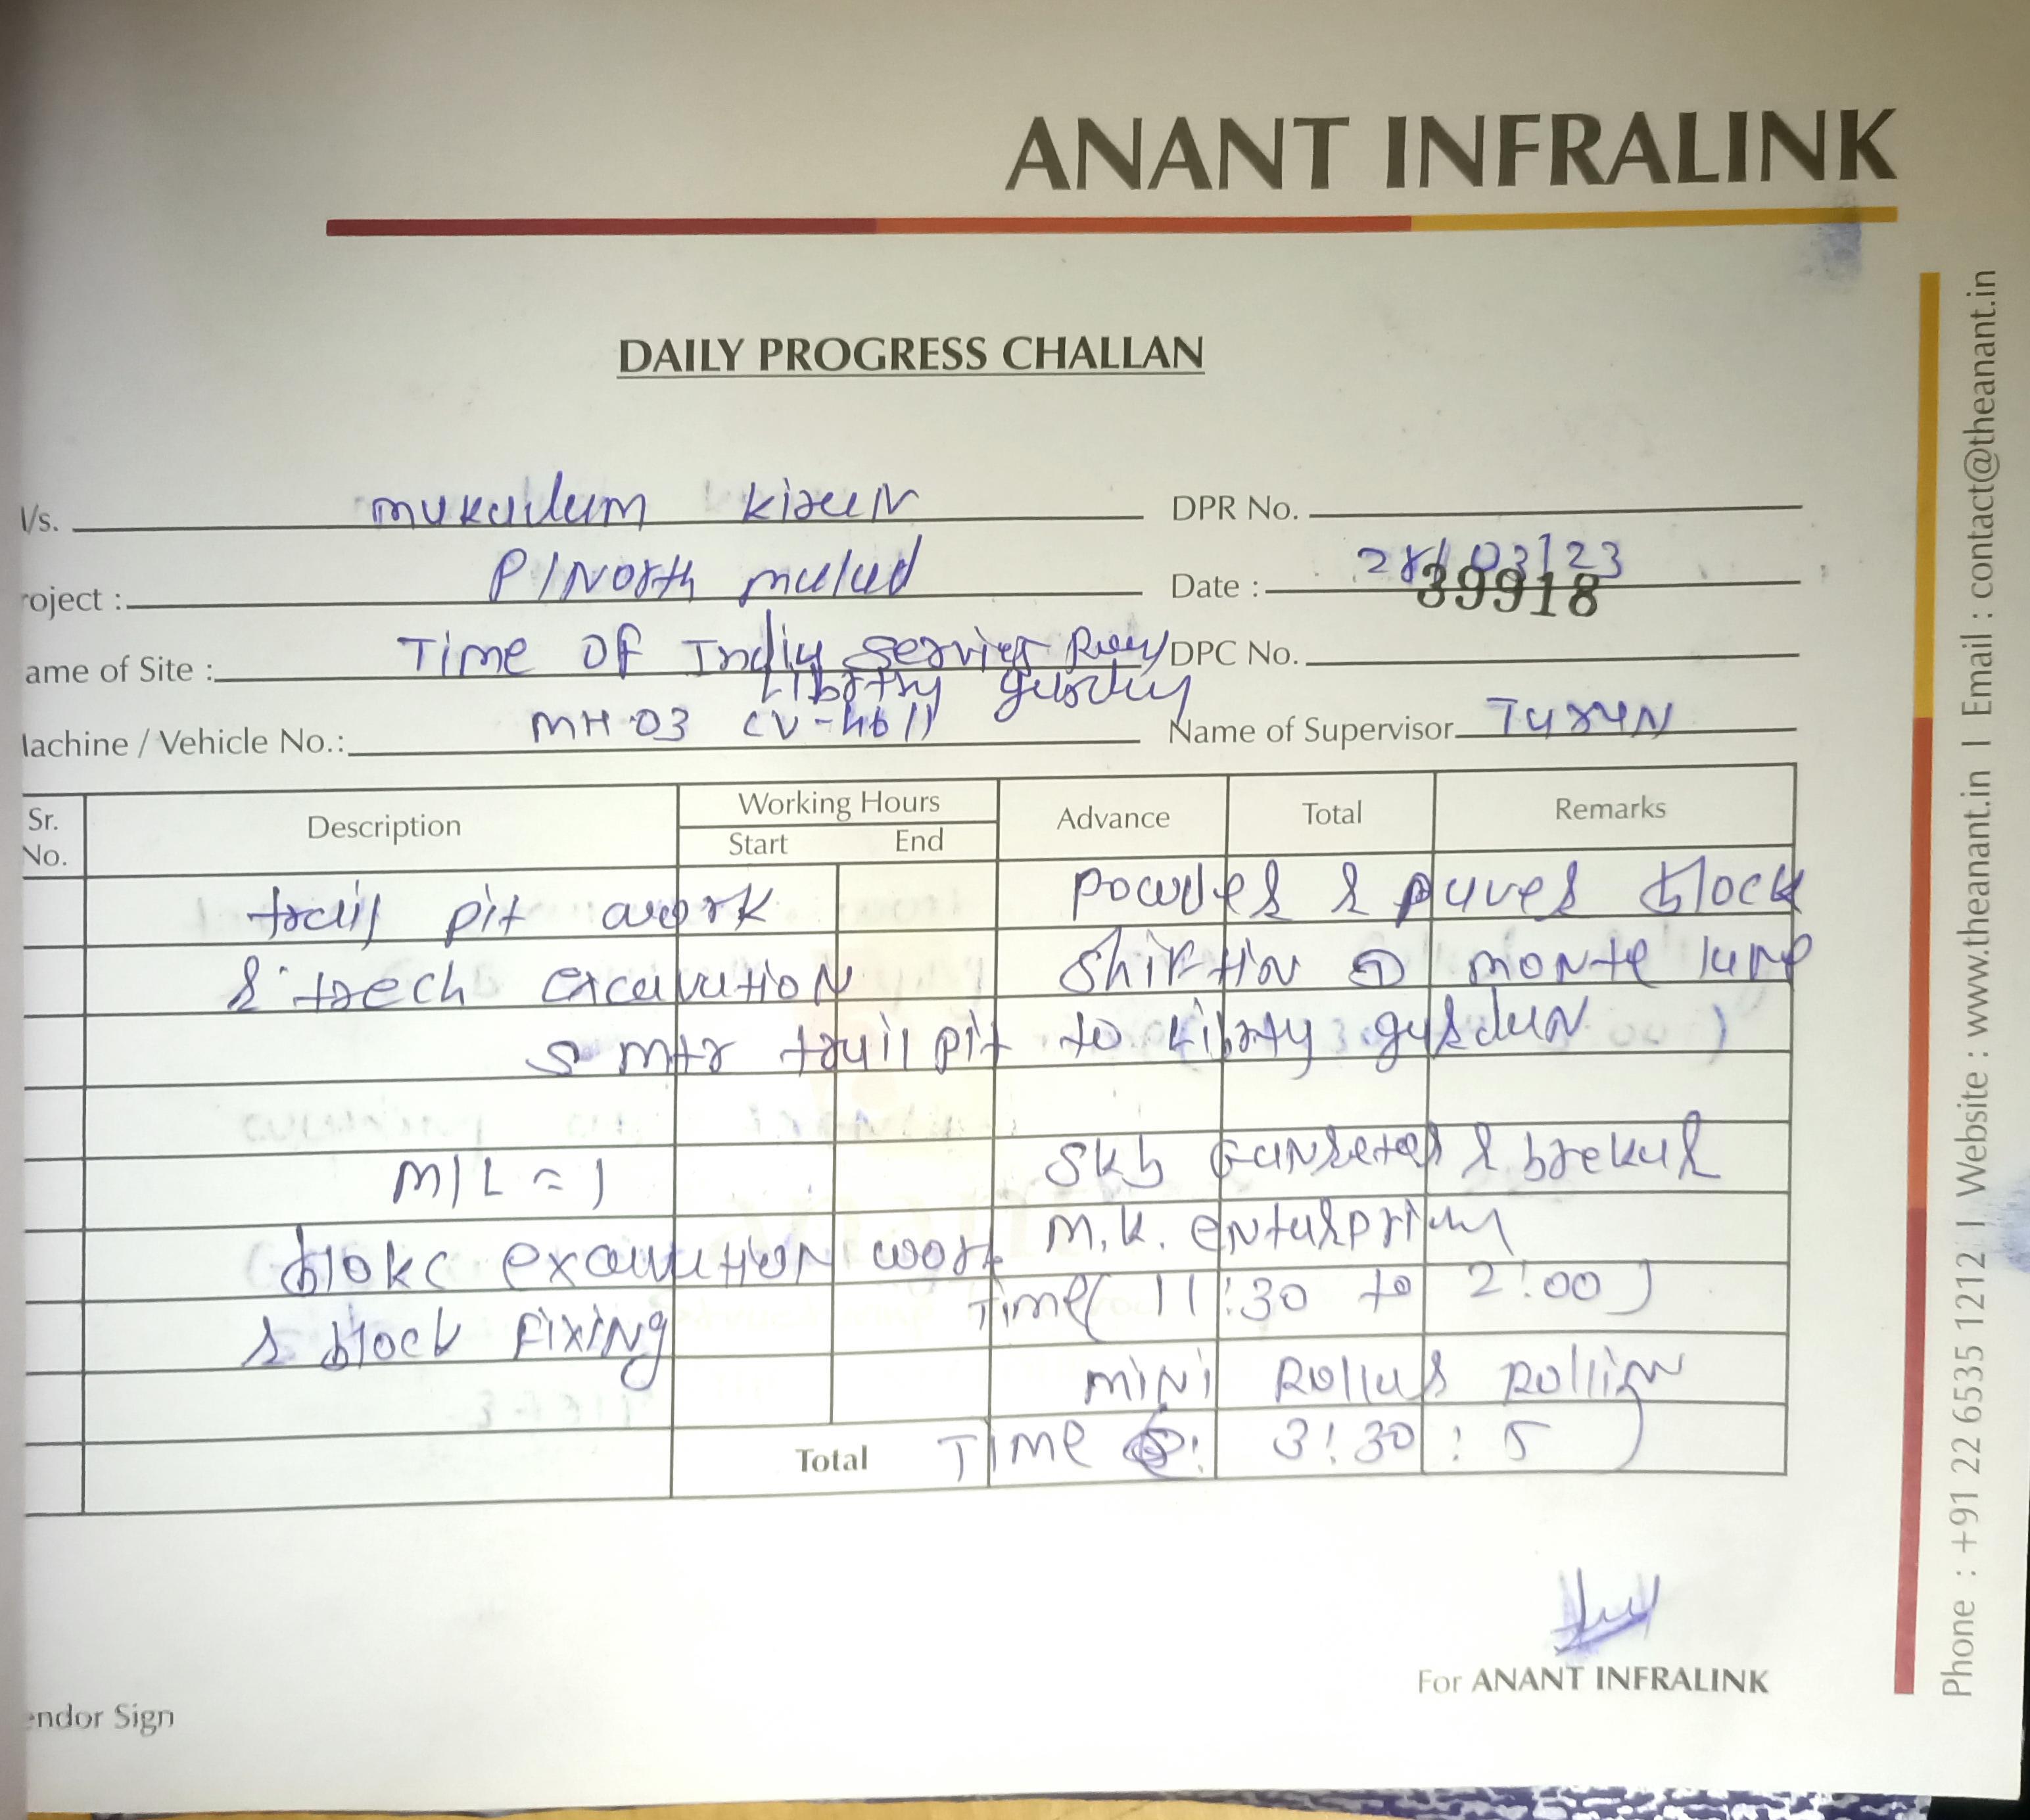 ANANT INFRALINK
DAILY PROGRESS CHALLAN
/s. mukudum kiren
DPR No.
roject : P/North mulud
Date : 28/03/23
39918
ame of Site : Time OF Indiu Servies
DPC No.
Librty gurden
achine / Vehicle No.: MH 03 CV-4611
Name of Supervisor Turun
Sr. No. Description Working Hours Start End Advance Total Remarks
trail pit work powder & puver block
& trech excuvution Shiftin monte lune
5 mtr truil pit to Librty gurdun
M/L = 1 Skb & brekur
blokc excuvution work M.K. enturprium
& block Fixing Time ( 11:30 to 2:00 )
mini Rollur Rollin
Total Time 3:30 : 5 )
For ANANT INFRALINK
endor Sign
Phone : +91 22 6535 1212 I Website : www.theanant.in I Email : contact@theanant.in